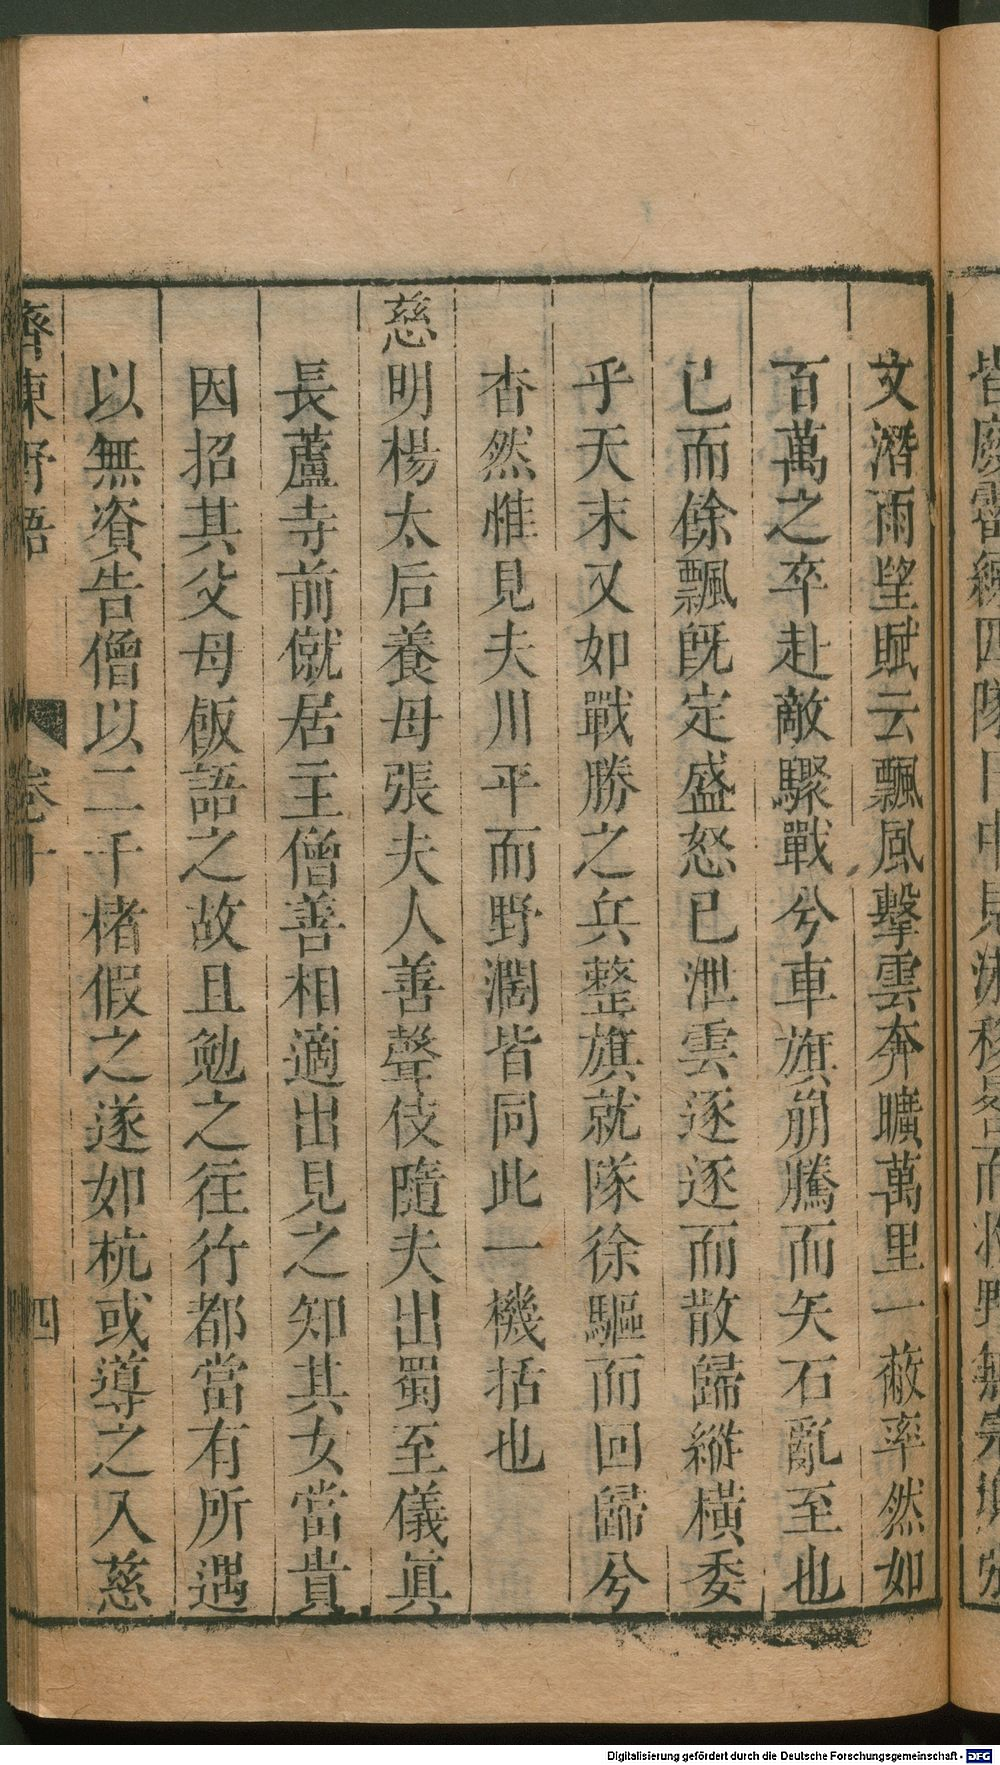 文潛雨望賦云飄風擊雲奔曠萬里一蔽率然如
百萬之卒赴敵驟戰兮車旗崩騰而矢石亂至也
已而餘飄旣定盛怒已泄雲逐逐而散歸縱橫委
乎天末又如戰勝之兵整旗就隊徐驅而回歸兮
杳然惟見夫川平而野濶皆同此一機括也
慈明楊太后養母張夫人善聲伎隨夫出蜀至儀眞
長蘆寺前僦居主僧善相適出見之知其女當貴
因招其父母飯語之故且勉之往行都當有所遇
以無資告僧以二千楮假之遂如杭或導之入慈
齊東野語 卷十 四
Digitalisierung gefördert durch die Deutsche Forschungsgemeinschaft - DFG